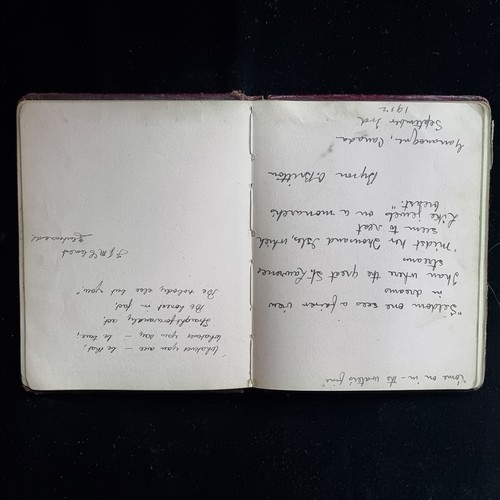 "Come on in – the water's fine"
"Seldom one sees a fairer view
in dreams
Than where the great St. Lawrence
streams
'Midst her Thousand Isles, which
seem to rest
Like jewels on a monarch's
breast."
Byron C. Britton
Gananoque, Canada
September 3rd
1912
"Whatever you are – be that,
Whatever you say – be true,
Straightforwardly act,
Be honest in fact,
Be nobody else but you."